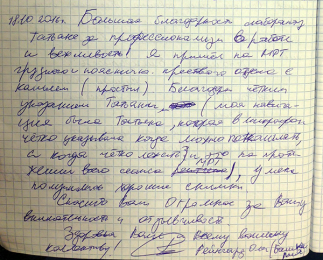 18.10.2016г. Большая благодарность лаборанту
Татьяне за профессионализм в работе
и вежливость! Я пришла на МРТ
грудного и пояснично-крестцового отдела с
кашлем (простыл). Благодаря чётким
указаниям Татьяны, (моя навига-
ция была Татьяна, которая в микрофон
чётко указывала когда можно покашлять,
а когда чётко лежать) и это на протя-
жении всего сеанса МРТ, у меня
получились хорошие снимки
Спасибо вам Огромное за Вашу
внимательность и отзывчивость
Здоровья Вам и всему вашему
коллективу!